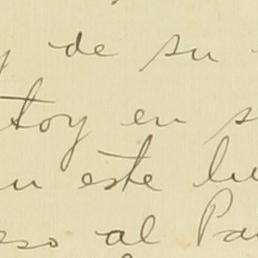 y de su
stoy en s
n este lu
eso al Pa